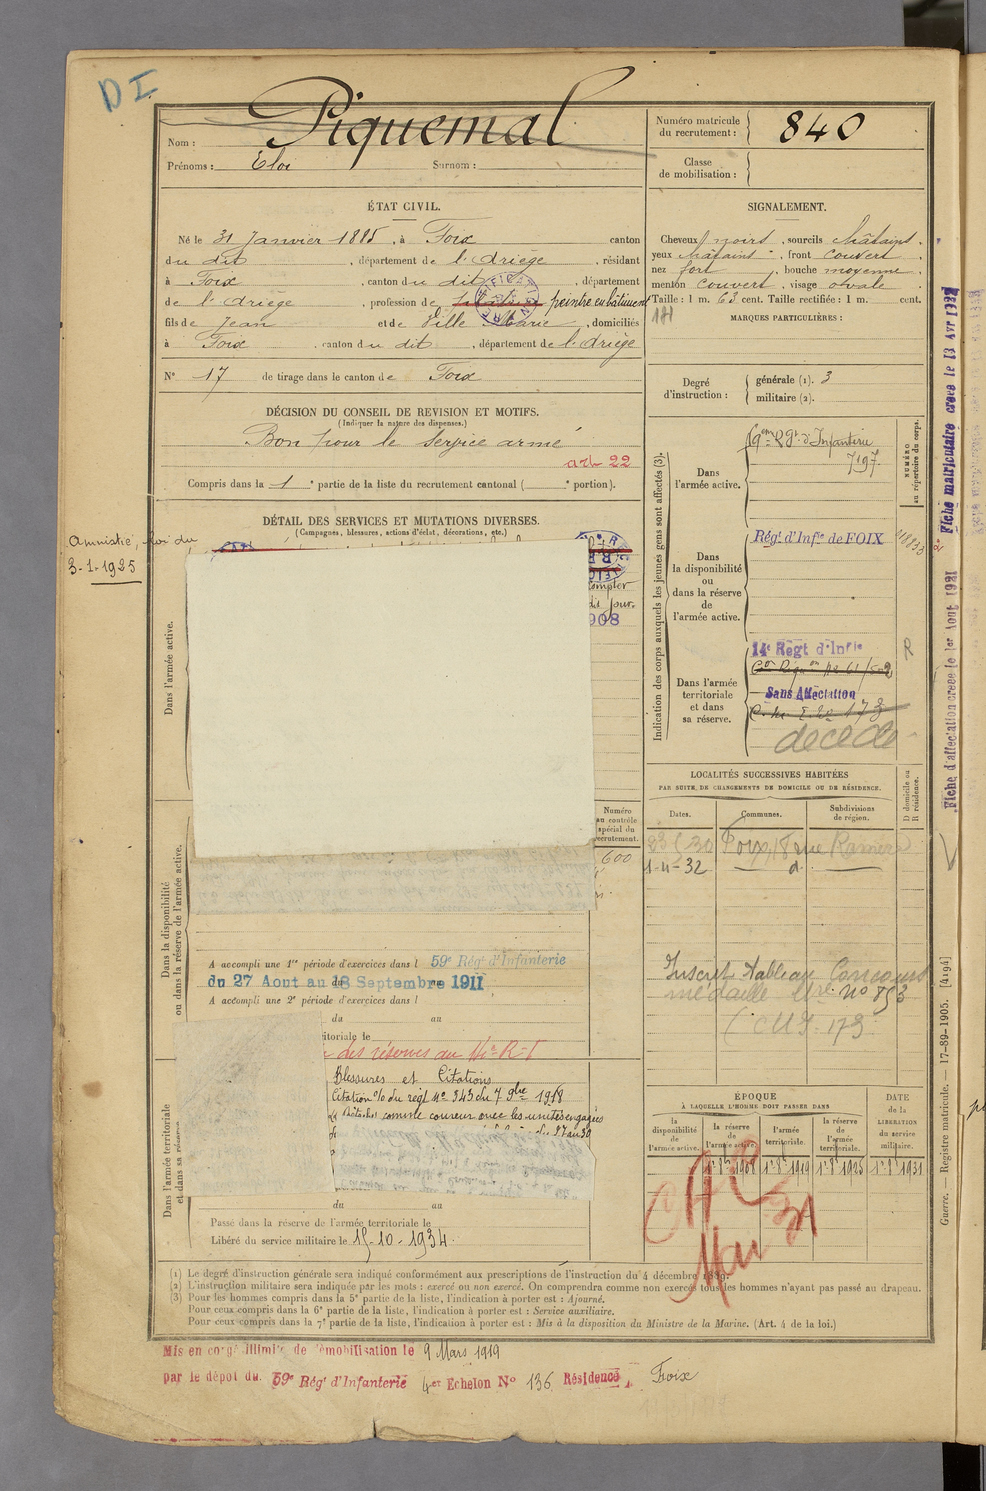 D I
Nom : Piquemal
Prénoms : Eloi Surnom :
Numéro matricule
du recrutement : 840
Classe
de mobilisation :
ÉTAT CIVIL.
Né le 31 Janvier 1885, à Foix canton
du dit, département de l'Ariège, résidant
à Foix, canton du dit, département
de l'Ariège, profession de peintre en bâtiment
fils de Jean et de Ville Marie, domiciliés
à Foix, canton du dit, département de l'Ariège
N° 17 de tirage dans le canton de Foix
SIGNALEMENT.
Cheveux noirs, sourcils châtains.
yeux châtains, front couvert
nez fort, bouche moyenne,
menton couvert, visage ovale
Taille : 1 m. 63 cent. Taille rectifiée : 1 m. cent.
MARQUES PARTICULIÈRES :
Degré
d'instruction :
générale (1). 3
militaire (2).
DÉCISION DU CONSEIL DE REVISION ET MOTIFS.
(Indiquer la nature des dispenses.)
Bon pour le service armé
art 22
Compris dans la 1e partie de la liste du recrutement cantonal ( e portion).
DÉTAIL DES SERVICES ET MUTATIONS DIVERSES.
(Campagnes, blessures, actions d'éclat, décorations, etc.)
Amnistié, loi du
3-1-1925
compter
dit jour.
908
Dans l'armée active.
Dans la disponibilité
ou dans la réserve de l'armée active.
Dans l'armée territoriale
et dans sa réserve
Numéro
au contrôle
spécial du
recrutement.
600
A accompli une 1re période d'exercices dans l 59e Rég' d'Infanterie
du 27 Aout au 18 Septembre 1911
A accompli une 2e période d'exercices dans l
du au
itoriale le
des réserves au 14e R-T
Blessures et Citations
Citation % du régt No 343 du 7 9bre 1918
comme coureur avec les unités engagées
du au
Passé dans la réserve de l'armée territoriale le
Libéré du service militaire le 15-10-1934.
Indication des corps auxquels les jeunes gens sont affectés (3).
NUMÉRO
au répertoire du corps.
Dans
l'armée active.
d'Infanterie
7197.
Dans
la disponibilité
ou
dans la réserve
de
l'armée active.
Régt d'Infie de FOIX
Dans l'armée
territoriale
et dans
sa réserve.
14e Régt d'Infie
Sans Affectation
173
décédé
R
LOCALITÉS SUCCESSIVES HABITÉES
PAR SUITE DE CHANGEMENTS DE DOMICILE OU DE RÉSIDENCE.
Dates. Communes. Subdivisions
de région.
D domicile ou
R résidence.
30 Foix, 8 rue
1-4-32 d.
Inscrit Tableau Concours
médaille Mre No 853
ÉPOQUE
À LAQUELLE L'HOMME DOIT PASSER DANS
la
disponibilité
de
l'armée active.
la réserve
de
l'armée active.
l'armée
territoriale.
la réserve
de
l'armée
territoriale.
DATE
de la
LIBÉRATION
du service
militaire.
1r 8b 1908 1r 8b 1919 1r 8b 1925 1r 8b 1931
Fiche d'affectation créée le 1er Aout 1921
Fiche matriculaire créée le 13 Avr 1932
Guerre. — Registre matricule. — 17-89-1905. [4194]
(1) Le degré d'instruction générale sera indiqué conformément aux prescriptions de l'instruction du 4 décembre 1889.
(2) L'instruction militaire sera indiquée par les mots : exercé ou non exercé. On comprendra comme non exercés tous les hommes n'ayant pas passé au drapeau.
(3) Pour les hommes compris dans la 5e partie de la liste, l'indication à porter est : Ajourné.
Pour ceux compris dans la 6e partie de la liste, l'indication à porter est : Service auxiliaire.
Pour ceux compris dans la 7e partie de la liste, l'indication à porter est : Mis à la disposition du Ministre de la Marine. (Art. 4 de la loi.)
Mis en congé illimité de démobilisation le 9 Mars 1919
par le dépot du 59e Rég' d'Infanterie 4er Echelon No 136 Résidence Foix